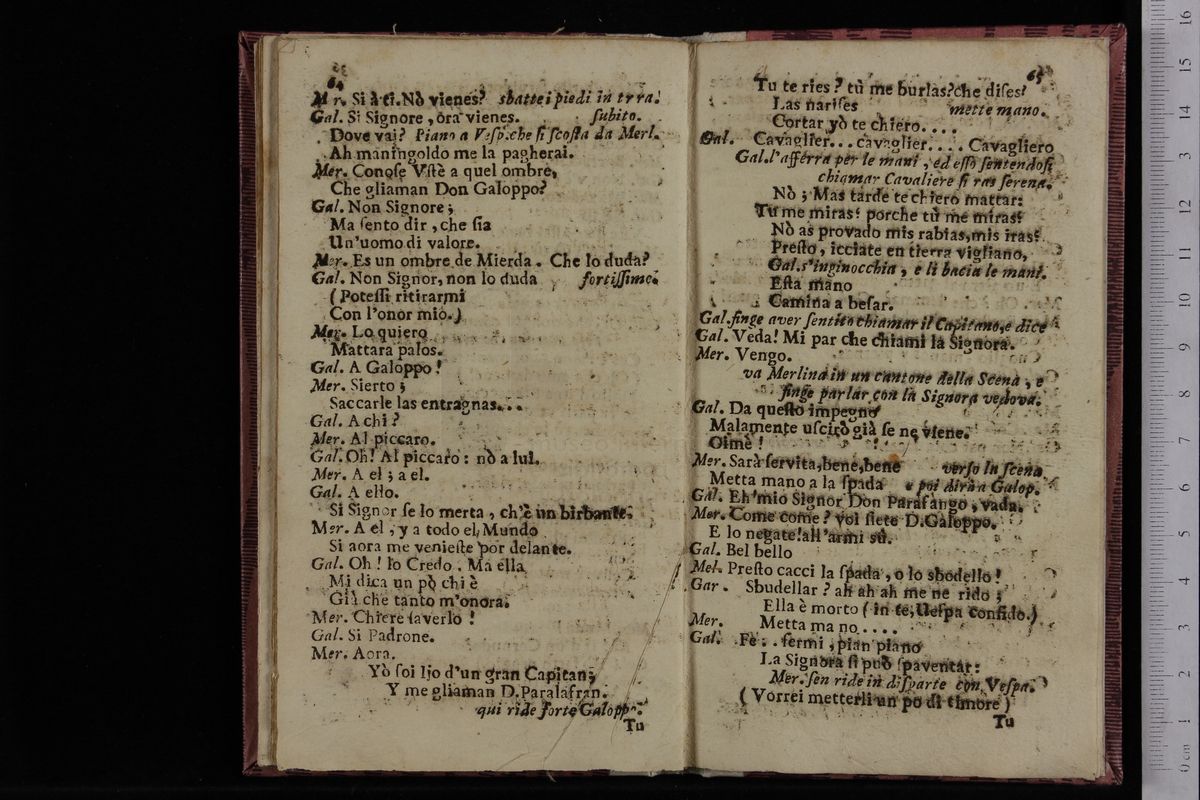 64
Mer. Si à ti. Nò vienes? sbatte i piedi in trra.
Gal. Si Signore, ora vienes. subito.
Dove vai? Piano a Vesp. che si scosta da Merl.
Ah maningoldo me la pagherai.
Mer. Conose Vstè a quel ombre,
Che gliaman Don Galoppo?
Gal. Non Signore;
Ma sento dir, che sia
Un'uomo di valore.
Mer. Es un ombre de Mierda. Che lo duda?
Gal. Non Signor, non lo duda fortissimo.
(Potessi ritirarmi
Con l'onor mio.)
Mer. Lo quiero
Mattara palos.
Gal. A Galoppo!
Mer. Sierto;
Saccarle las entragnas...
Gal. A chi?
Mer. Al piccaro.
Gal. Oh! Al piccaro: nò a lui.
Mer. A el; a el.
Gal. A ello.
Si Signor se lo merta, ch'è un birbante.
Mer. A el, y a todo el Mundo
Si aora me venieste por delante.
Gal. Oh! Io Credo. Ma ella
Mi dica un pò chi è
Già che tanto m'onora.
Mer. Chiere saverlo!
Gal. Si Padrone.
Mer. Aora.
Yò soi Ijo d'un gran Capitan;
Y me gliaman D. Paralafran.
qui ride forte Galopp.
Tu
65
Tu te ries? tù me burlas? che dises?
Las narises mette mano.
Cortar yò te chiero....
Gal. Cavaglier... cavaglier.... Cavagliero
Gal. l'afferra per le mani, ed esso sentendosi
chiamar Cavaliere si ras serena.
Nò; Mas tarde te chiero mattar:
Tu me miras? porche tù me miras?
Nò as provado mis rabias, mis iras?
Presto, icciate en tierra vigliano,
Gal. s'inginocchia, e li bacia le mani.
Esta mano
Camina a besar.
Gal. finge aver sentito chiamar il Capitano, e dice
Gal. Veda! Mi par che chiami la Signora.
Mer. Vengo.
va Merlina in un cantone della Scena, e
finge parlar con la Signora vedova.
Gal. Da questo impegno
Malamente uscirò già se ne viene.
Oimè!
Mer. Sarà servita, bene, bene verso la scena
Metta mano a la spada e poi dirà a Galop.
Gal. Eh mio Signor Don Parafango, vada.
Mer. Come come? voi siete D. Galoppo.
E lo negate! all'armi sù.
Gal. Bel bello
Mel. Presto cacci la spada, o lo sbodello!
Gar. Sbudellar? ah ah ah me ne rido;
Ella è morto (in te, Uespa confido.)
Mer. Metta ma no....
Gal. Fè.. fermi, pian piano
La Signora si può spaventar:
Mer. sen ride in disparte con Vespa.
(Vorrei metterli un po di timore)
Tu